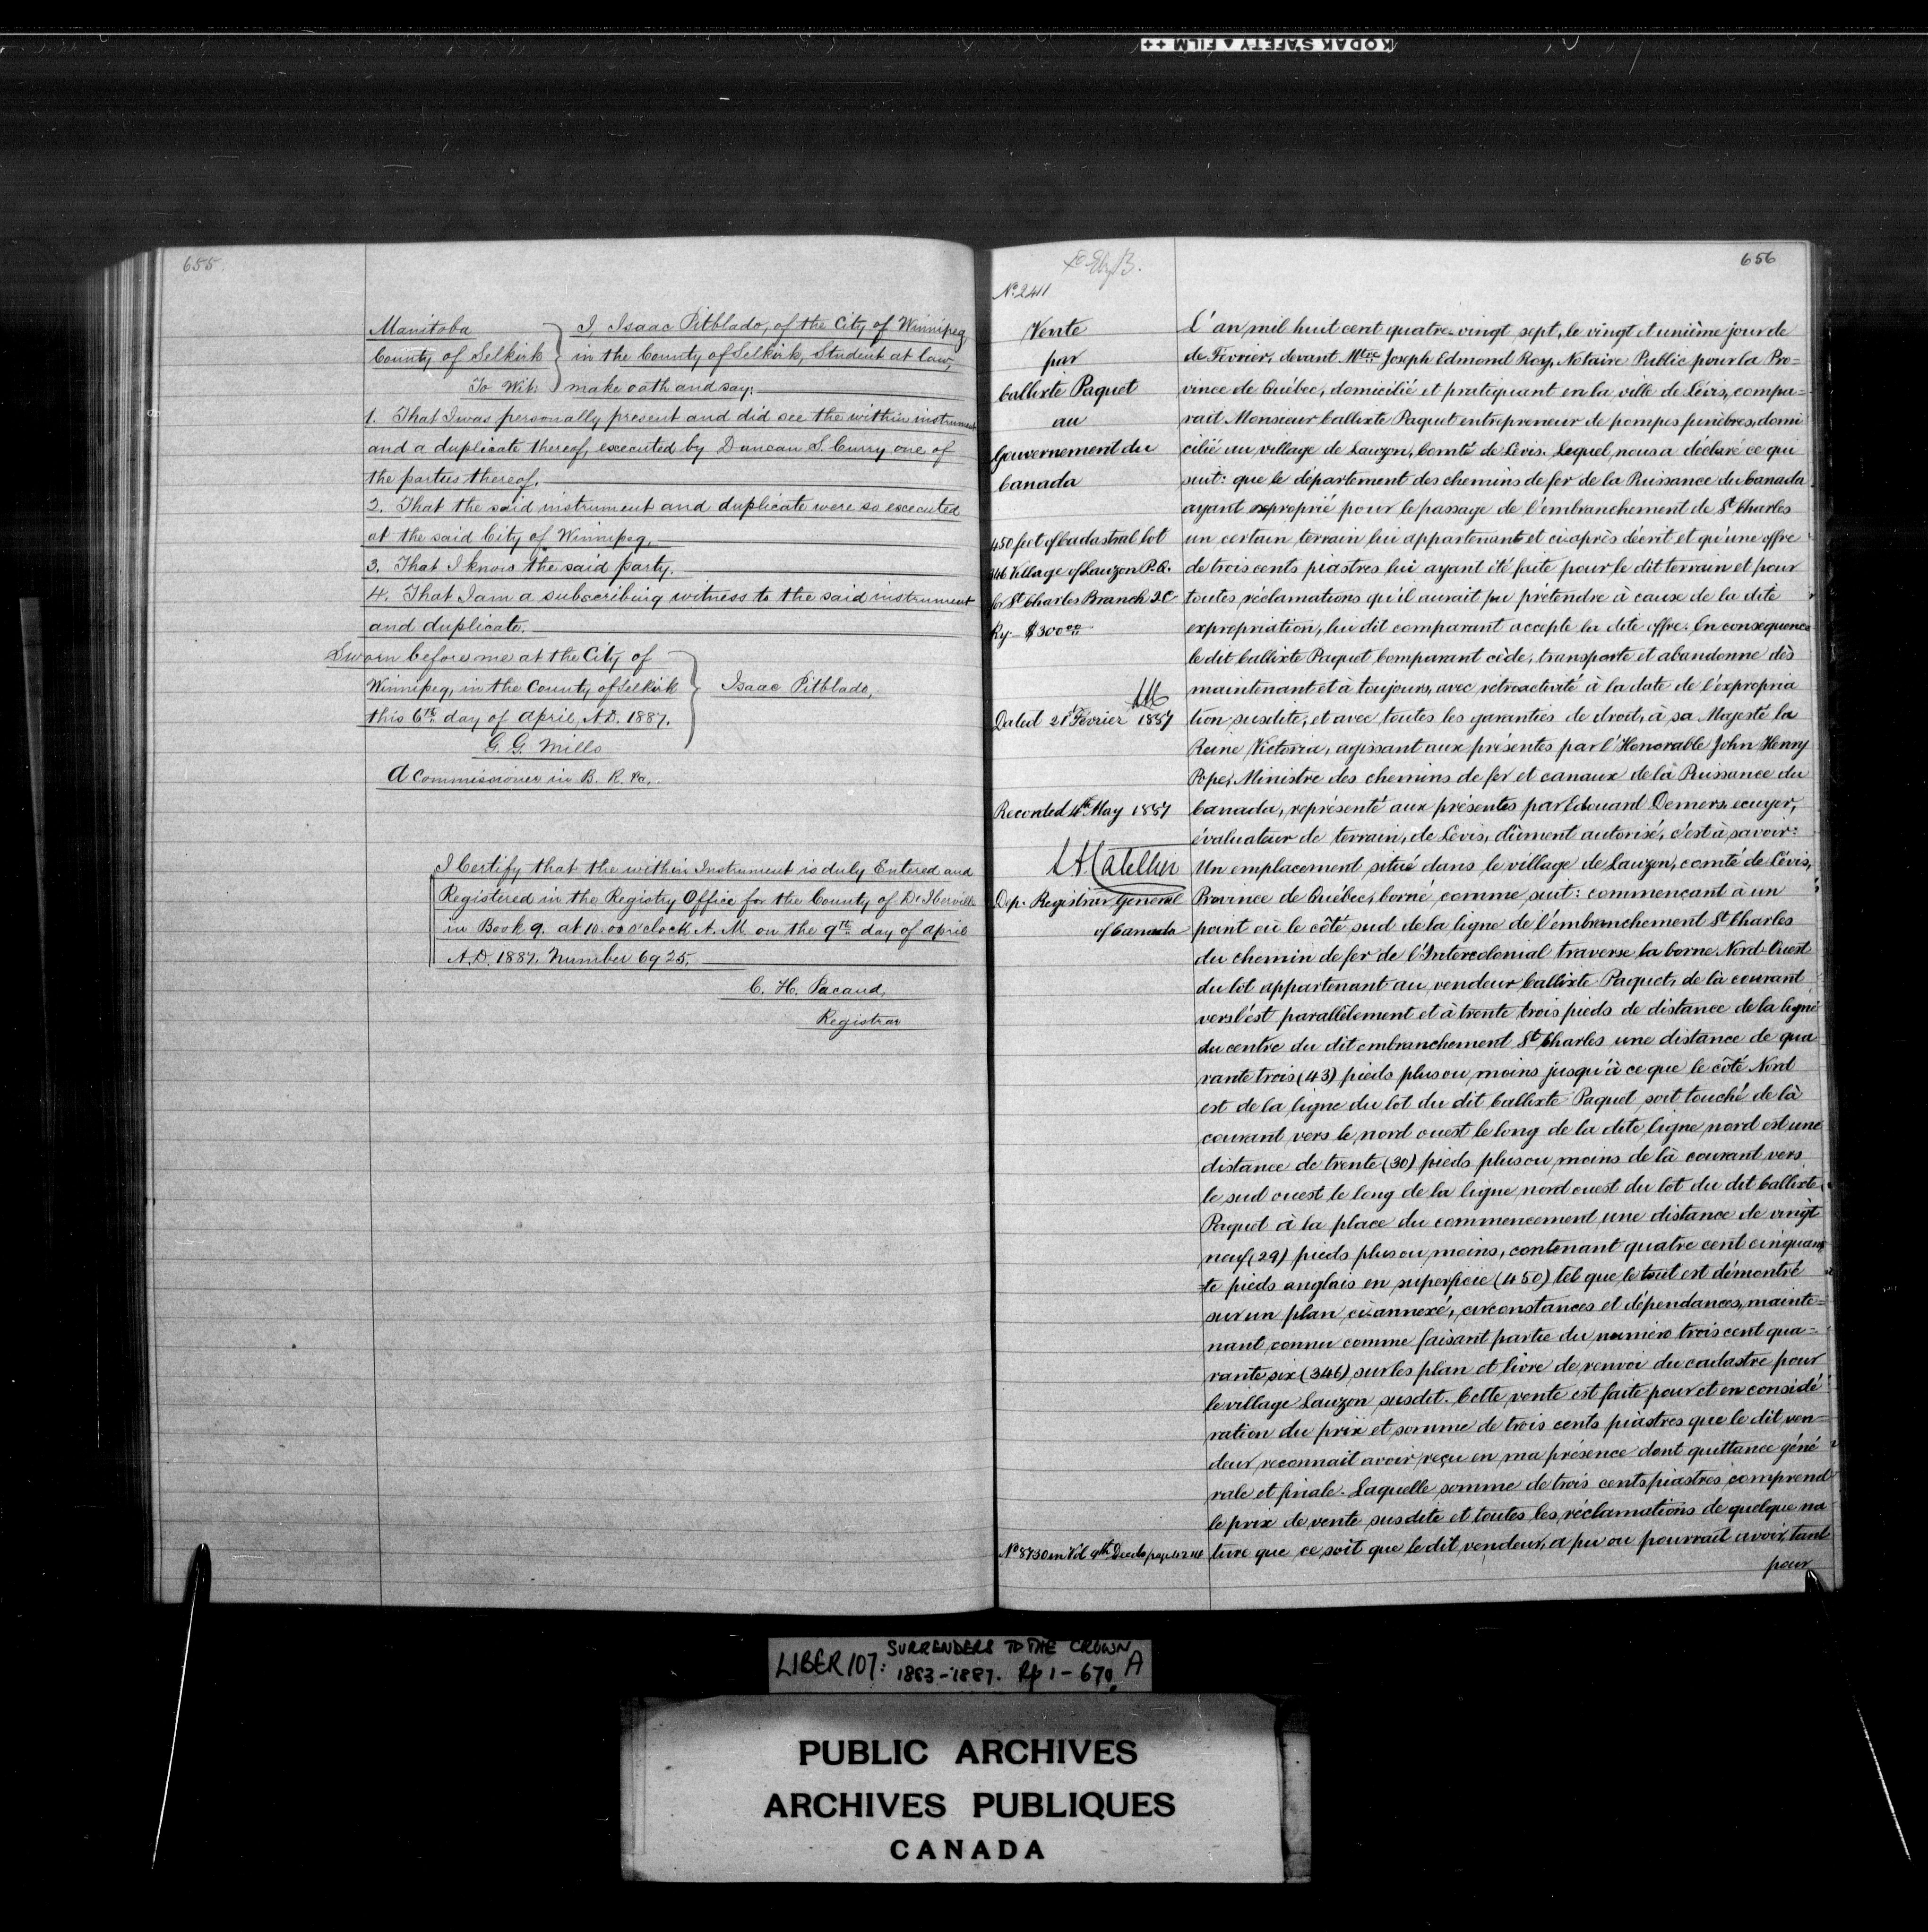 KODAK SAFETY FILM ++
655.
Manitoba
County of Selkirk
To Wit:
I Isaac Pitblado, of the City of Winnipeg
in the County of Selkirk, Student at law,
make oath and say:
1. That I was personally present and did see the within instrument
and a duplicate thereof, executed by Duncan S. Curry one of
the parties thereof.
2. That the said instrument and duplicate were so executed
at the said City of Winnipeg.
3. That I know the said party.
4. That I am a subscribing witness to the said instrument
and duplicate.
Sworn before me at the City of
Winnipeg, in the County of Selkirk
this 6th day of April, A.D. 1887.
Isaac Pitblado,
G. G. Mills
A Commissioner in B. R. &c.
I Certify that the within Instrument is duly Entered and
Registered in the Registry Office for the County of De Iberville
in Book 9. at 10.00 o'clock A. M. on the 9th day of April
A.D. 1887. Number 6925.
C. H. Pacaud,
Registrar
656
No 2411
Vente
par
Callixte Paquet
au
Gouvernement du
Canada
450 feet of Cadastral lot
346 Village of Lauzon P.Q.
for St Charles Branch I.C.
Ry - $300.00
Dated 21 Février 1887
Recorded 4th May 1887
L. A. Catellier
Dep. Registrar General
of Canada
No 8730 in Vol 9th Deeds page
L'an mil huit cent quatre-vingt sept, le vingt et unième jour de
de Février, devant Mtre Joseph Edmond Roy, Notaire Public pour la Pro=
vince de Québec, domicilié et pratiquant en la ville de Lévis, compa=
rait Monsieur Callixte Paquet entrepreneur de pompes funèbres, domi
cilié au village de Lauzon, Comté de Lévis. Lequel nous a déclaré ce qui
suit: que le département des chemins de fer de la Puissance du Canada
ayant exproprié pour le passage de l'embranchement de St Charles
un certain terrain lui appartenant et ci-après décrit et qu'une offre
de trois cents piastres lui ayant été faite pour le dit terrain et pour
toutes réclamations qu'il aurait pu prétendre à cause de la dite
expropriation, lui dit comparant accepte la dite offre. En consequence
le dit Callixte Paquet Comparant cède, transporte et abandonne dès
maintenant et à toujours, avec rétroactivité à la date de l'expropria
tion susdite, et avec toutes les garanties de droit, à sa Majesté la
Reine Victoria, agissant aux présentes par l'Honorable John Henry
Pope, Ministre des chemins de fer et canaux de la Puissance du
Canada, représenté aux présentes par Edouard Demers, ecuyer,
évaluateur de terrain, de Lévis, dûment autorisé, c'est à savoir:
Un emplacement situé dans le village de Lauzon, comté de Lévis,
Province de Québec, borné comme suit: commençant à un
point où le côté sud de la ligne de l'embranchement St Charles
du chemin de fer de l'Intercolonial traverse la borne Nord-Ouest
du lot appartenant au vendeur Callixte Paquet, de là courant
vers l'est parallèlement et à trente trois pieds de distance de la ligne
du centre du dit embranchement St Charles une distance de qua
rante trois (43) pieds plus ou moins jusqu'à ce que le côté Nord
est de la ligne du lot du dit Callixte Paquet soit touché de là
courant vers le nord ouest le long de la dite ligne nord est une
distance de trente (30) pieds plus ou moins de là courant vers
le sud ouest le long de la ligne nord ouest du lot du dit Callixte
Paquet à la place du commencement une distance de vingt
neuf (29) pieds plus ou moins, contenant quatre cent cinquan
=te pieds anglais en superficie (450) tel que le tout est démontré
sur un plan ci-annexé, circonstances et dépendances, mainte=
nant connu comme faisant partie du numéro trois cent qua=
rante six (346) sur les plan et livre de renvoi du cadastre pour
le village Lauzon susdit. Cette vente est faite pour et en considé
ration du prix et somme de trois cents piastres que le dit ven=
deur reconnait avoir reçu en ma présence dont quittance géné
rale et finale. Laquelle somme de trois cents piastres comprend
le prix de vente susdite et toutes les réclamations de quelque na
ture que ce soit que le dit vendeur, a pu ou pourrait avoir, tant
pour
LIBER 107: SURRENDERS TO THE CROWN
1883-1887. Pp 1-670. A
PUBLIC ARCHIVES
ARCHIVES PUBLIQUES
CANADA